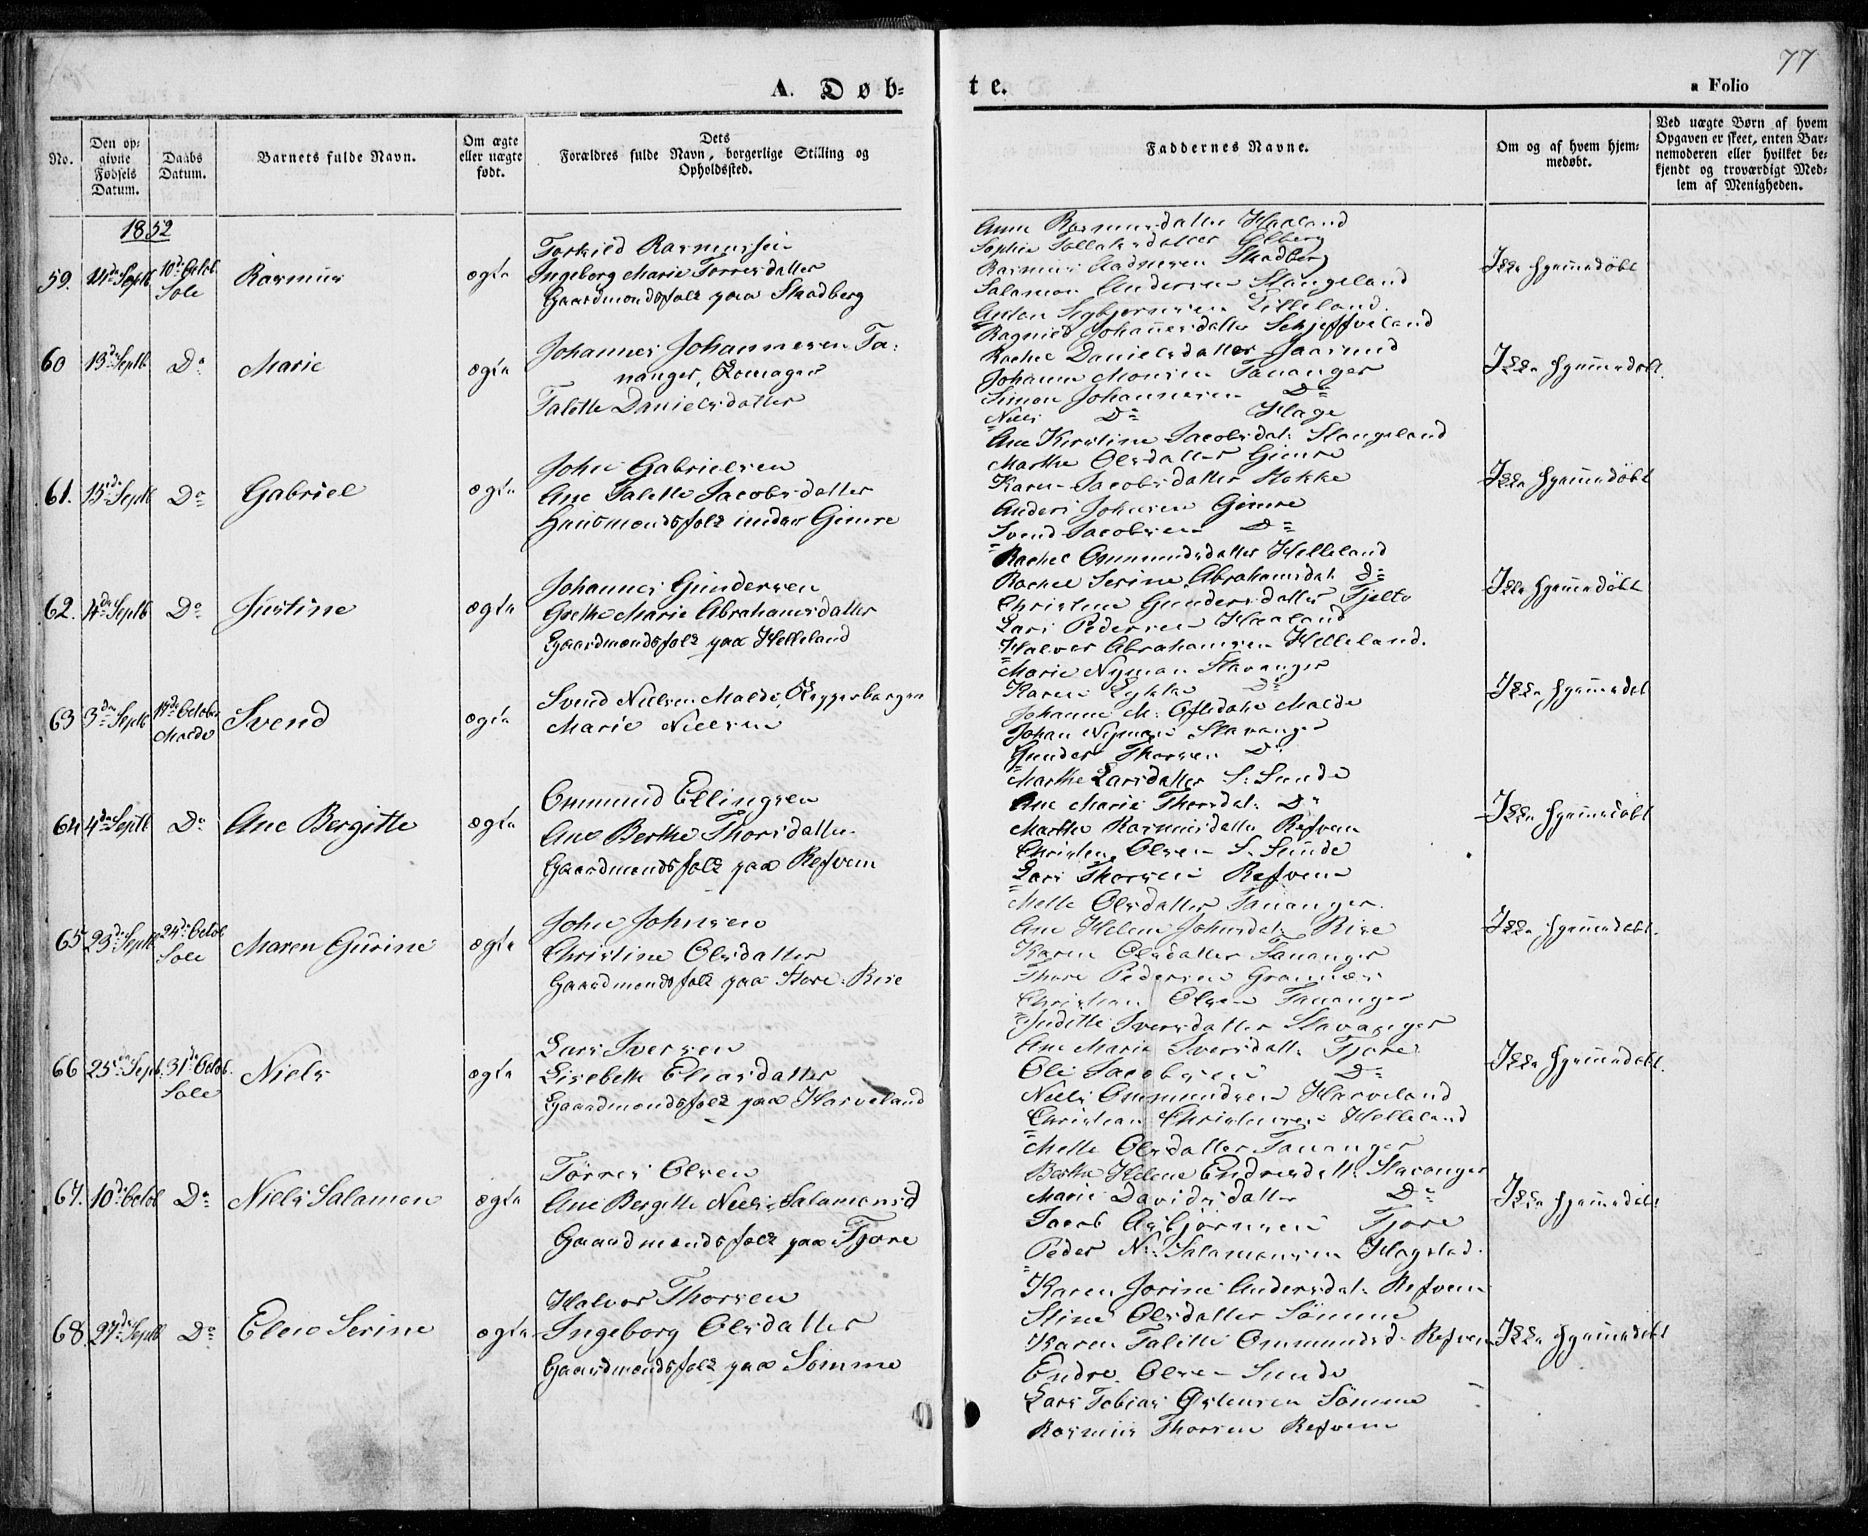 77
A. Døb-
te.
a Folio
No.
Den op-
givne
Fødsels
Datum.
Daabs
Datum.
Barnets fulde Navn.
Om ægte
eller uægte
født.
Dets
Forældres fulde Navn, borgerlige Stilling og
Opholdssted.
Faddernes Navne.
Om og af hvem hjem-
medøbt.
Ved uægte Børn af hvem
Opgaven er skeet, enten Bar-
nemoderen eller hvilket be-
kjendt og troværdigt Med-
lem af Menigheden.
1852
59. 14de Septb 10de Octob. Sole
Rasmus
ægte
Torkild Rasmussen
Ingeborg Marie Torresdatter
Gaardmandsfolk paa Skadberg
Anne Rasmusdatter Haaland
Sophie Tollaksdatter Ølberg
Rasmus Aadnesen Skadberg
Salamon Andersen Stangeland
Anton Sigbjørnsen Lilleland.
Ikke hjemmedøbt
60 13de Septb Do
Marie
ægte
Johannes Johannesen Ta-
nanger, Lomager
Talette Danielsdatter
Ragnild Johannesdatter Sckjeffveland
Rachel Danielsdatter Jaasund
Johanne Monsen Tananger
Simon Johannesen Do
Niels Do Hage
Ikke hjemmedøbt.
61. 15de Septb Do
Gabriel
ægte
John Gabrielsen
Ane Talette Jacobsdatter
Huusmandsfolk under Gimre
Ane Kirstine Jacobsdat: Stangeland
Marthe Olsdatter Gimre
Karen Jacobsdatter Stokke
Anders Johnsen Gimre
Svend Jacobsen Do
Ikke hjemmedøbt
62. 4de Septb Do
Justine
ægte
Johannes Gundersen
Grethe Marie Abrahamsdatter
Gaardmandsfolk paa Helleland
Rachel Ommundsdatter Helleland
Rachel Serine Abrahamsdat Do
Christine Gundersdatter Tjelte
Lars Pedersen Haaland
Halvor Abrahamsen Helleland.
Ikke hjemmedøbt
63 3de Septb 17de October Malde
Svend
ægte
Svend Nielsen Malde,
Marie Nielsen
Marie Nyman Stavanger
Karen Lykke Do
Johanne M: Oftedahl Malde
Johan Nyman Stavanger
Gunder Thorsen Do
Ikke hjemmedøbt
64 4de Septb Do
Ane Bergitte
ægte
Ommund Ellingsen
Ane Berthe Thorsdatter
Gaardmandsfolk paa Refvem
Marthe Larsdatter S: Sunde
Ane Marie Thorsdat: Do
Marthe Rasmusdatter Refvem
Christen Olsen S. Sunde
Lars Thorsen Refvem
Ikke hjemmedøbt
65 23de Septb 24de Octob Sole
Maren Gurine
ægte
John Johnsen
Christine Olsdatter
Gaardmandsfolk paa Store Rise
Mette Olsdatter Tananger.
Ane Helene Johnsdat: Risa
Karen Olsdatter Tananger
Thore Pedersen Grannæs
Christian Olsen Tananger
Ikke hjemmedøbt.
66 25de Sept. 31de Octob. Sole
Niels
ægte
Lars Iversen
Lisebeth Eliasdatter
Gaardmandsfolk paa Harveland
Juditte Iversdatter Stavanger
Ane Marie Iversdatt: Tjore
Ole Jacobsen Do
Niels Ommundsen Harveland
Christian Christensen Helleland
Ikke hjemmedøbt.
67. 10de Octob Do
Niels Salamon
ægte
Tørres Olsen
Ane Bergitte Niels-Salamonsd
Gaardmandsfolk paa Tjore
Mette Olsdatter Tananger
Berthe Helene Endresdatt: Stavanger
Marie Davidsdatter Do
Jacob Asbjørnsen Tjore
Peder N: Salamonsen Hagstad.
Ikke hjemmedøbt
68. 27de Septb Do
Elene Serine
ægte
Halvor Thorsen
Ingeborg Olsdatter
Gaardmandsfolk paa Sømme
Karen Jorine Andersdat: Refvem
Stine Olsdatter Sømme
Karen Talette Ommundsd. Refvem
Endre Olsen Sunde
Lars Tobias Østensen Sømme
Rasmus Thorsen Refvem
Ikke hjemmedøbt